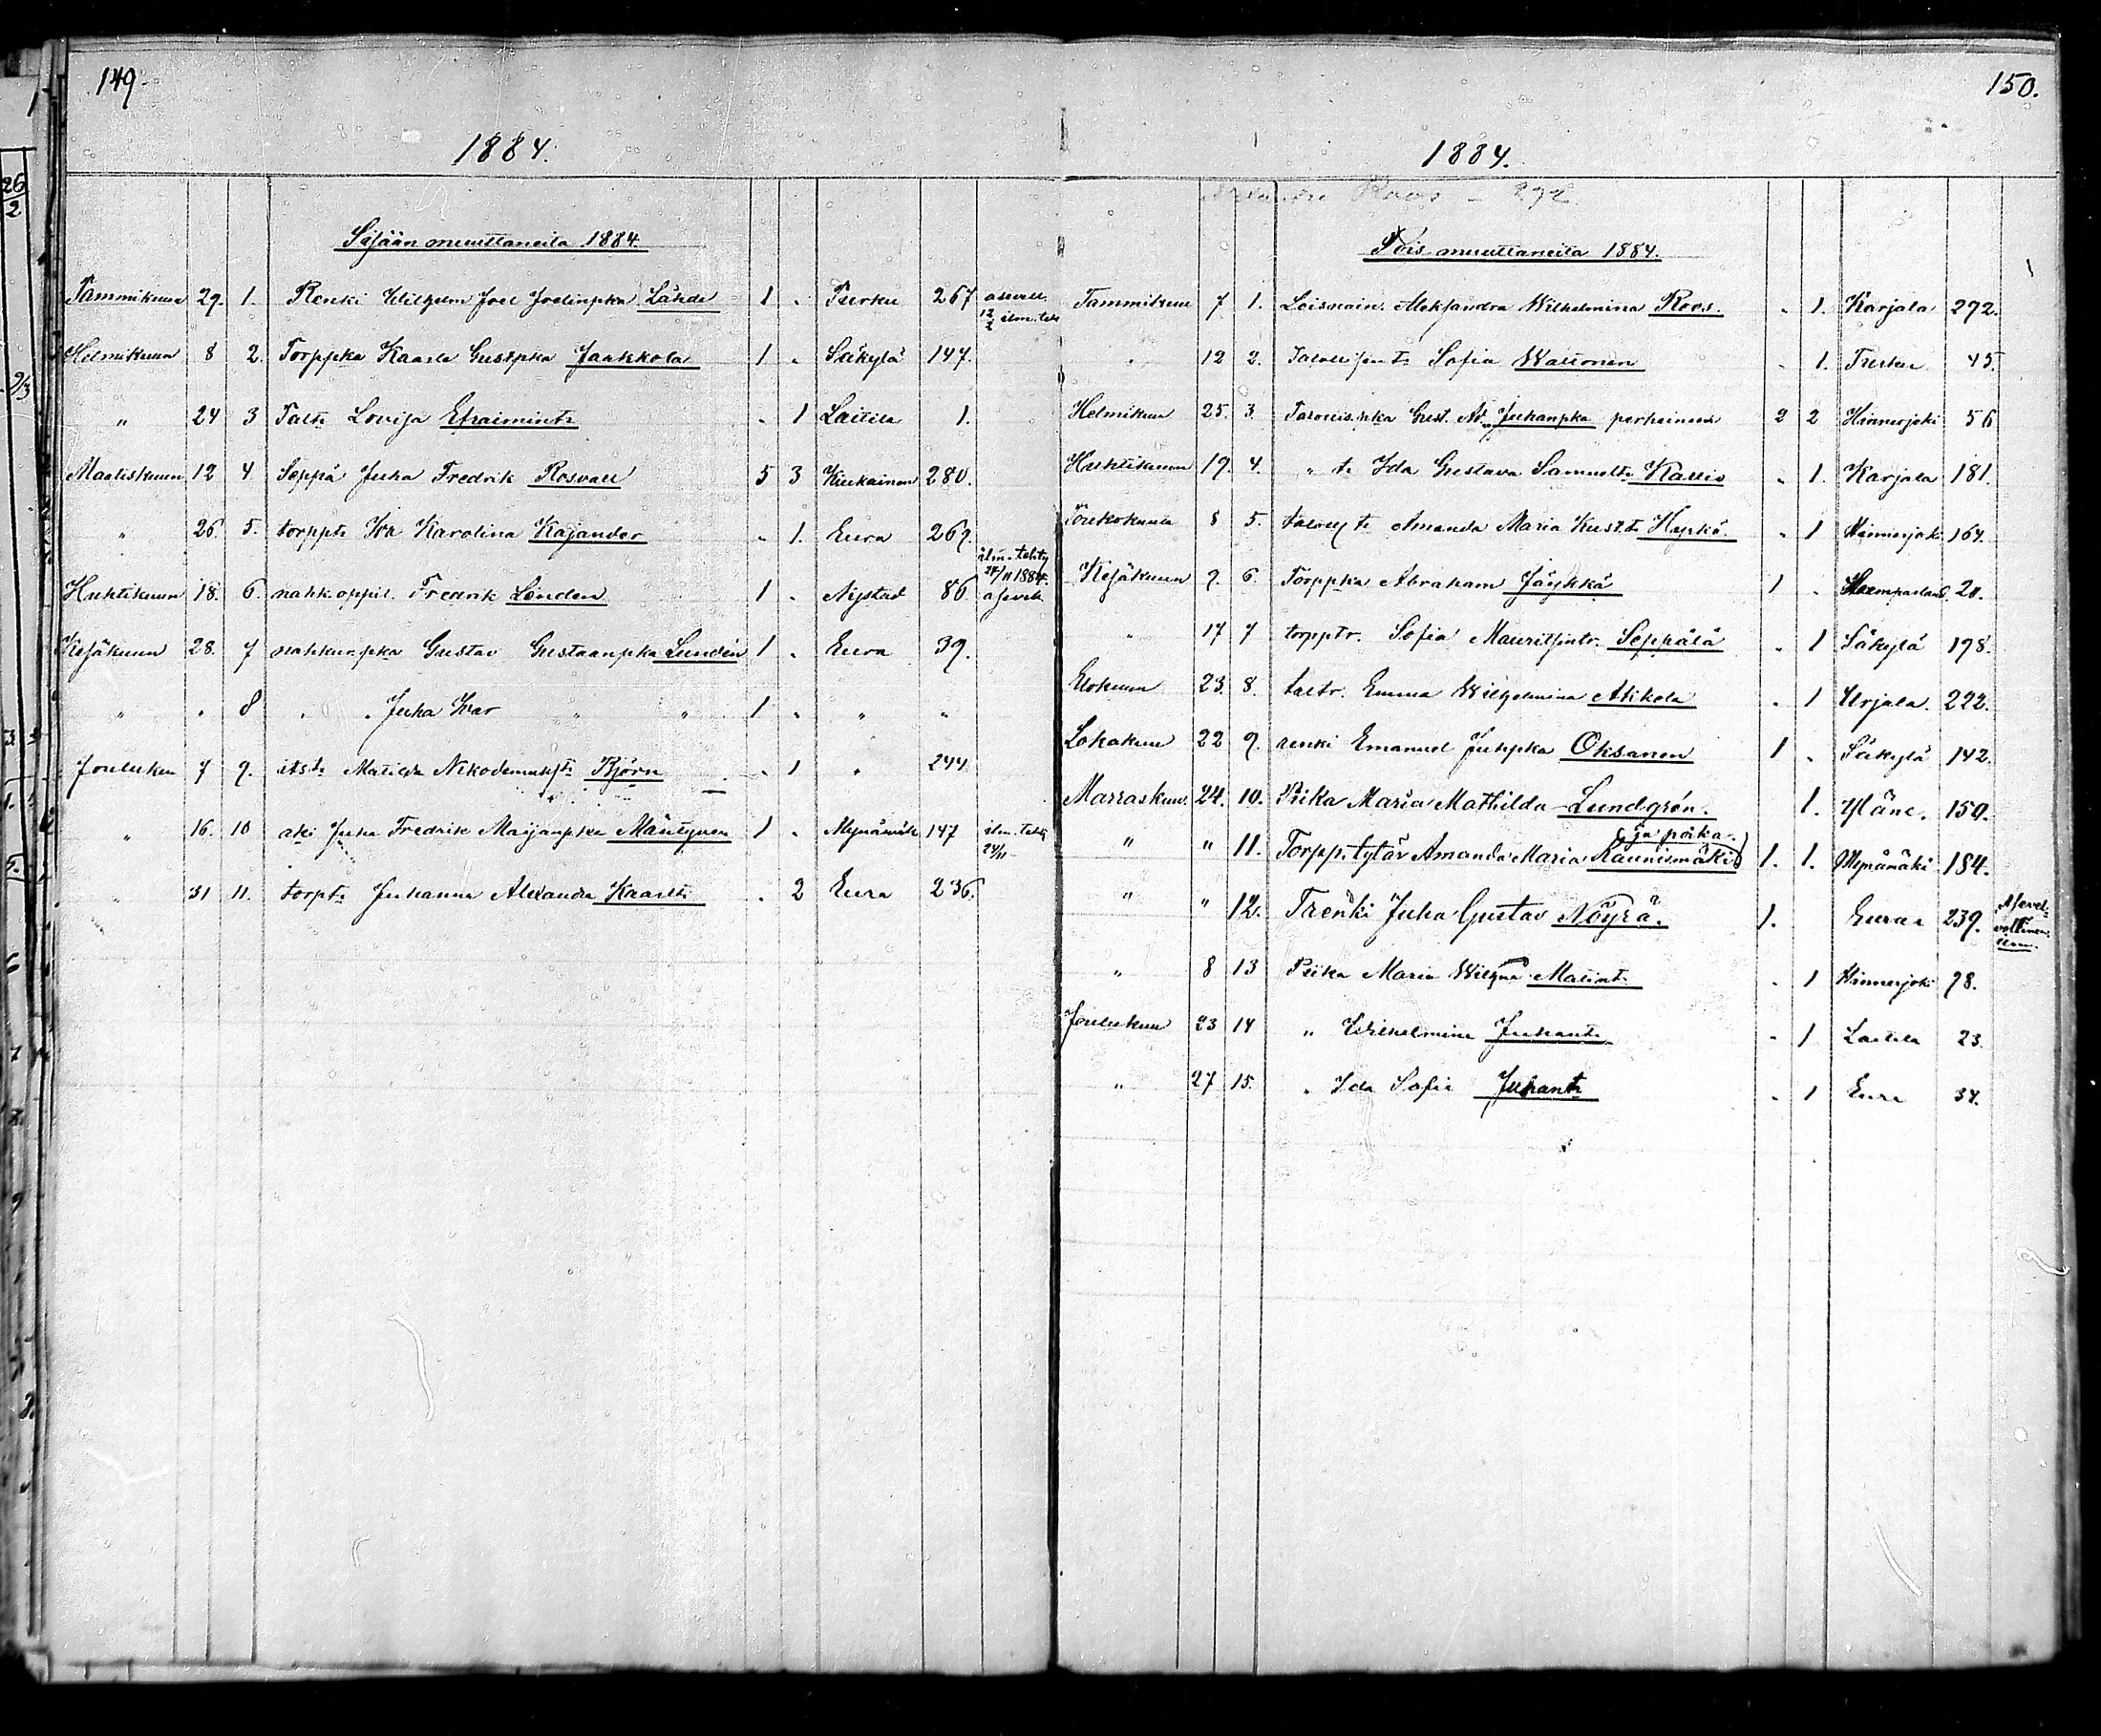 149.
1884.
Sisään muuttaneita 1884.
Tammikuun 29. 1. Renki Wilhelm Joel Joelinpka Lähde 1 " Turku 267 asevell. 12/2 ilm. teht
Helmikuun 8 2. Torppka Kaarle Gustpka Jaakkola 1 " Säkylä 147.
" 24 3 Taltr Lovisa Efraimintr " 1 Laitila 1.
Maaliskuun 12 4. Seppä Juha Fredrik Rosvall 5 3 Kiukainen 280.
" 26. 5. torpptr Iva Karolina Kajander " 1. Eura 269.
Huhtikuun 18. 6. nahk.oppil. Fredrik Linden 1 " Nystad 86 ilm. tehty 24/11 1884. asevel.
Kesäkuun 28. 7 nahkurpka Gustav Gustaanpka Lundén 1 " Eura 39.
" " 8 " " Juha Ivar " " 1 " " "
Jouluken 7 9. itstr Matilda Nikodemustr Björn " 1 " 244.
" 16. 10 aki Juha Fredrik Maijanpka Mäntynen 1 " Mynämäki 147 ilm. tehty 24/11
" 31 11. torptr Juhanna Alexandra Kaarltr " 2 Eura 236.
150.
1884.
Roos – 272.
Pois muuttaneita 1884.
Tammikuu 7 1. Loisnain. Aleksandra Wilhelmina Roos. " 1. Karjala 272.
" 12 2. Sofia Waltonen " 1. Turku 45.
Helmikuu 25. 3. Gust. Ad. Juhanpka perheineen 2 2 Hinnerjoki 56
Huhtikuun 19. 4. " tr Ida Gustava Samueltr Kallio " 1. Karjala 181.
Toukokuuta 8 5. tr Amanda Maria Kust.tr Hyrkö. " 1 Hinnerjoki 164.
Kesäkuun 9. 6. Torppka Abraham Jäykkä 1 " 20.
" 17 7 torpptr. Sofia Mauritsintr. Seppälä " 1 Säkylä 198.
Elokuun 23. 8. taltr. Emma Wilhelmina Ahkola " 1 Urjala. 222.
Lokakuu 22 9. renki Emanuel Juhpka Oksanen 1 " Säkylä 142.
Marraskuu. 24. 10. Piika Maria Mathilda Lundgrén. 1. Yläne. 150.
" " 11. Torpp.tytär Amanda Maria Kaunismäki (ja poika.) 1. 1. Mynämäki 184.
" " 12. Trenki Juha Gustav Nöyrä. 1. Eura 239. Asevel-vollinen ilm.
" 8 13 Piika Maria Wilhna Matintr " 1 Hinnerjoki 98.
Joulukuu 23 14 " Wilhelmina Juhantr " 1 Laitila 23.
" 27 15. " Ida Sofia Juhantr " 1 Eura 34.